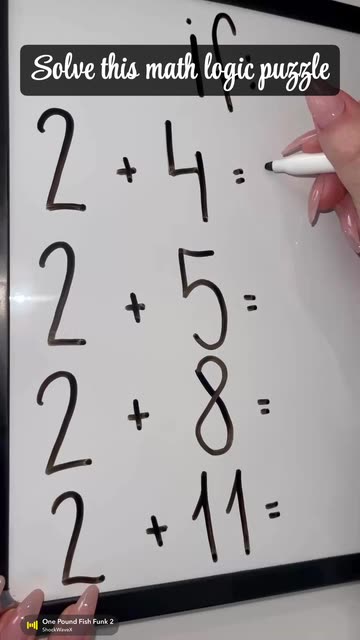 if:
Solve this math logic puzzle
2 + 4 =
2 + 5 =
2 + 8 =
2 + 11 =
One Pound Fish Funk 2
ShockWaveX